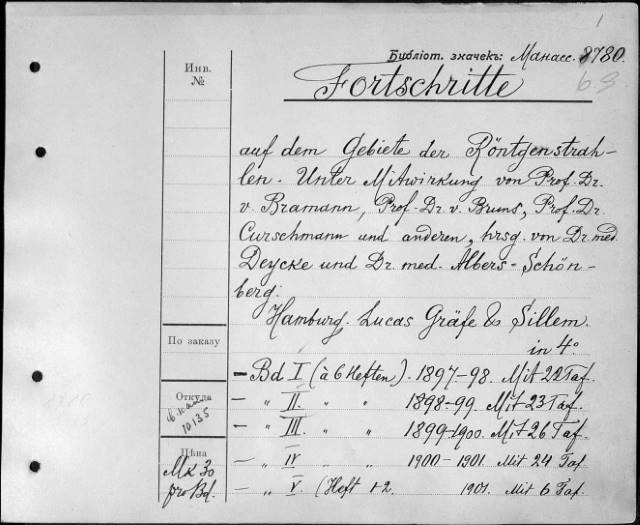 1
Библіот. значекъ: Манасс. 8780.
Инв.
№
Fortschritte
auf dem Gebiete der Röntgenstrah-
len. Unter Mitwirkung von Prof. Dr.
v. Bramann, Prof. Dr. v. Bruns, Prof. Dr.
Curschmann und anderen, hrsg. von Dr. med.
Deycke und Dr. med. Albers-Schön-
berg.
Hamburg. Lucas Gräfe & Sillem.
in 4°
По заказу
— Bd I (à 6 Heften). 1897-98. Mit 22 Taf.
Откуда
10135
— „ II. „ „ 1898-99. Mit 23 Taf.
— „ III. „ „ 1899-1900. Mit 26 Taf.
Цѣна
Mk 30
pro Bd.
— „ IV „ „ 1900-1901. Mit 24 Taf
— „ V. (Heft 1-2. 1901. Mit 6 Taf.